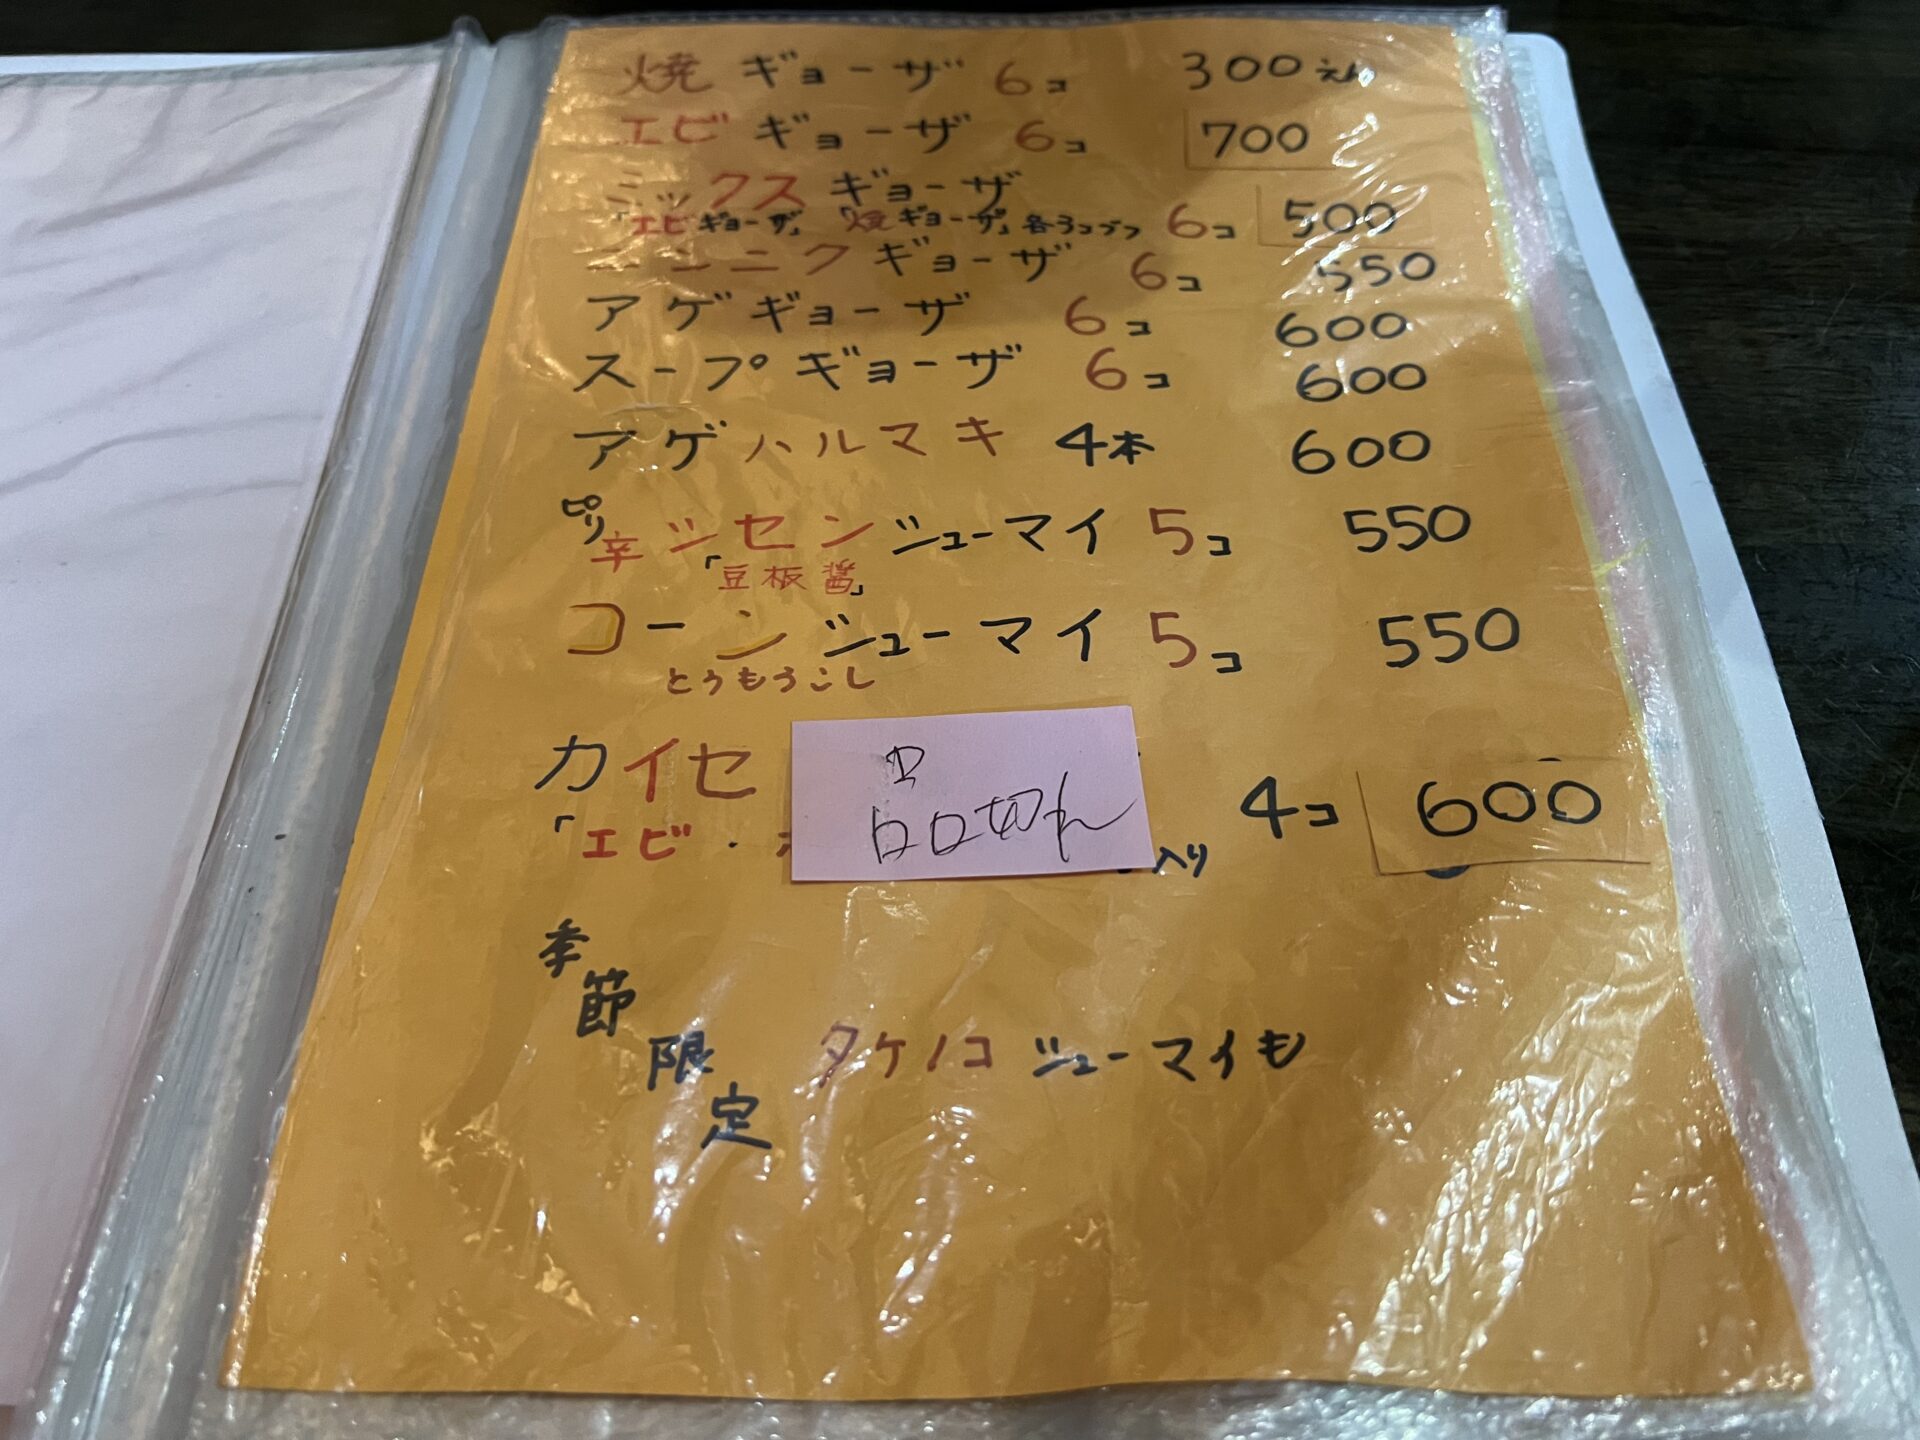 焼ギョーザ 6コ 300えん
エビギョーザ 6コ 700
ミックスギョーザ
「エビギョーザ」「焼ギョーザ」各3コヅツ 6コ 500
ニンニクギョーザ 6コ 550
アゲギョーザ 6コ 600
スープギョーザ 6コ 600
アゲハルマキ 4本 600
ピリ辛シセンジューマイ 5コ 550
「豆板醤」
コーンジューマイ 5コ 550
とうもろこし
カイセ 4コ 600
「エビ・ 入り
品切れ
季節限定 タケノコジューマイも